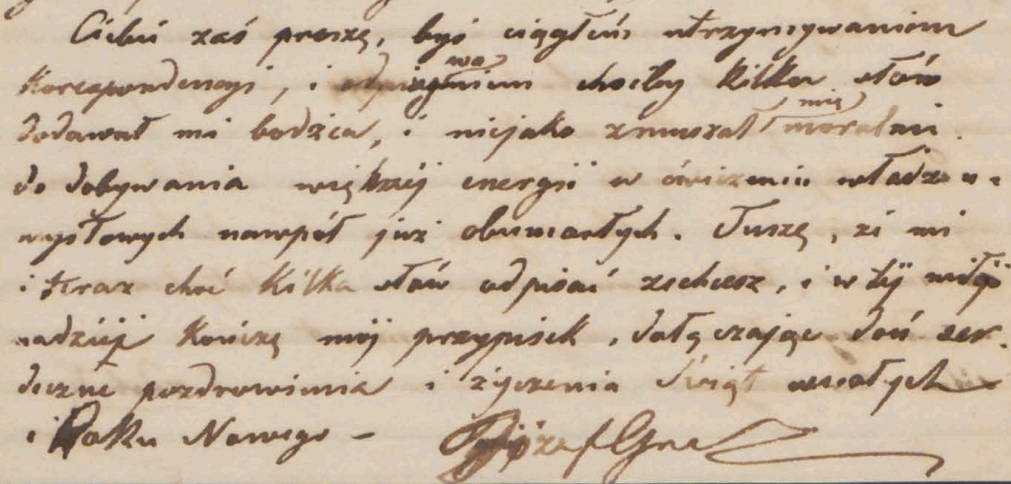 Ciebie zaś proszę, byś ciągłém utrzymywaniem
korespondencyi, i odpisywaniem choćby kilku słów
dodawał mi bodźca, i niejako zmuszał mię moralnie
do dobywania większéj energii w ćwiczeniu władz u-
mysłowych nawpół już obumarłych. Tuszę, że mi
i teraz choć kilka słów odpisać zechcesz, i w téj miłéj
nadzieji kończę mój przypisek, dołączając doń ser-
deczne pozdrowienia i życzenia Świąt wesołych
i Roku Nowego –
Józef